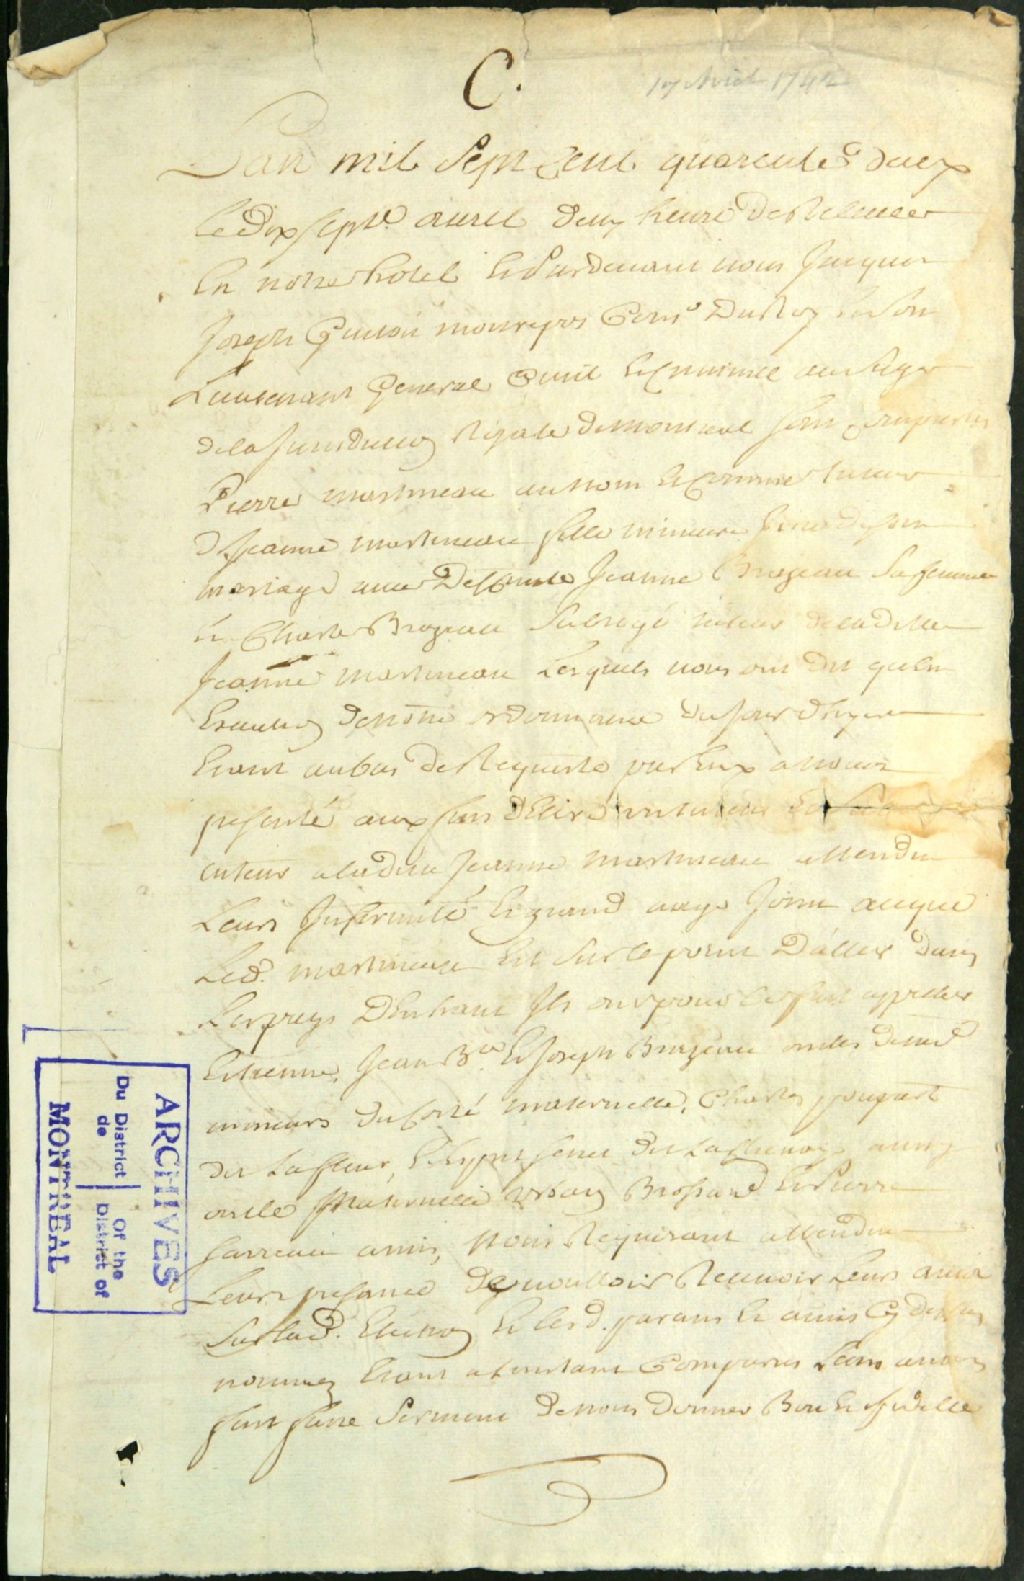 C.
17 Avril 1742
Lan mil Sept Cent quarente & deux
le dix sept.e avril deux heure de Relevée
En notre hotel Et Pardevant nous Jacques
Joseph Guiton monrepos Cons.r Du Roy & Son
Lieutenant General Civil Et Criminel au Siege
de la Jurisdiction Royale de montreal Sont Comparus
Pierre martineau au nom Et Comme tuteur
de Jeanne martineau fille mineure Issue de son
mariage avec Defunte Jeanne Brazeau Sa femme
Et Charle Brazeau Subrogé tuteur de ladite
Jeanne martineau Lesquels nous ont dit qu'en
Execution de notre ordonnance du jour d'hyer
Etant au bas de Requeste par Eux a nous
presenté aux fins d'Elire un tuteur
tuteur a ladite Jeanne martineau attendu
Leurs Infirmité Et grand aage Joint acque
Led. martineau Est sur le point D'aller dans
Les pays D'Enhaut Ils ont pour cet fait appeller
Etienne, Jean B.te Et Joseph Brazeau oncles de lad.
mineurs du Costé maternelle, Charles poupart
dit Lafleur, aussy
oncle Maternelle Brossard Et Pierre
Sarreau amis, Nous Requerant attendu
Leurs presance de voulloir Recevoir Leurs avis
Sur lad. Election Et lesd. parans Et amis Cy dessus
nommez Etant a l'instant Comparus Leurs avons
fait faire Serment de nous donner Bon Et fidelle
ARCHIVES
Du District | Of the
de | District of
MONTREAL